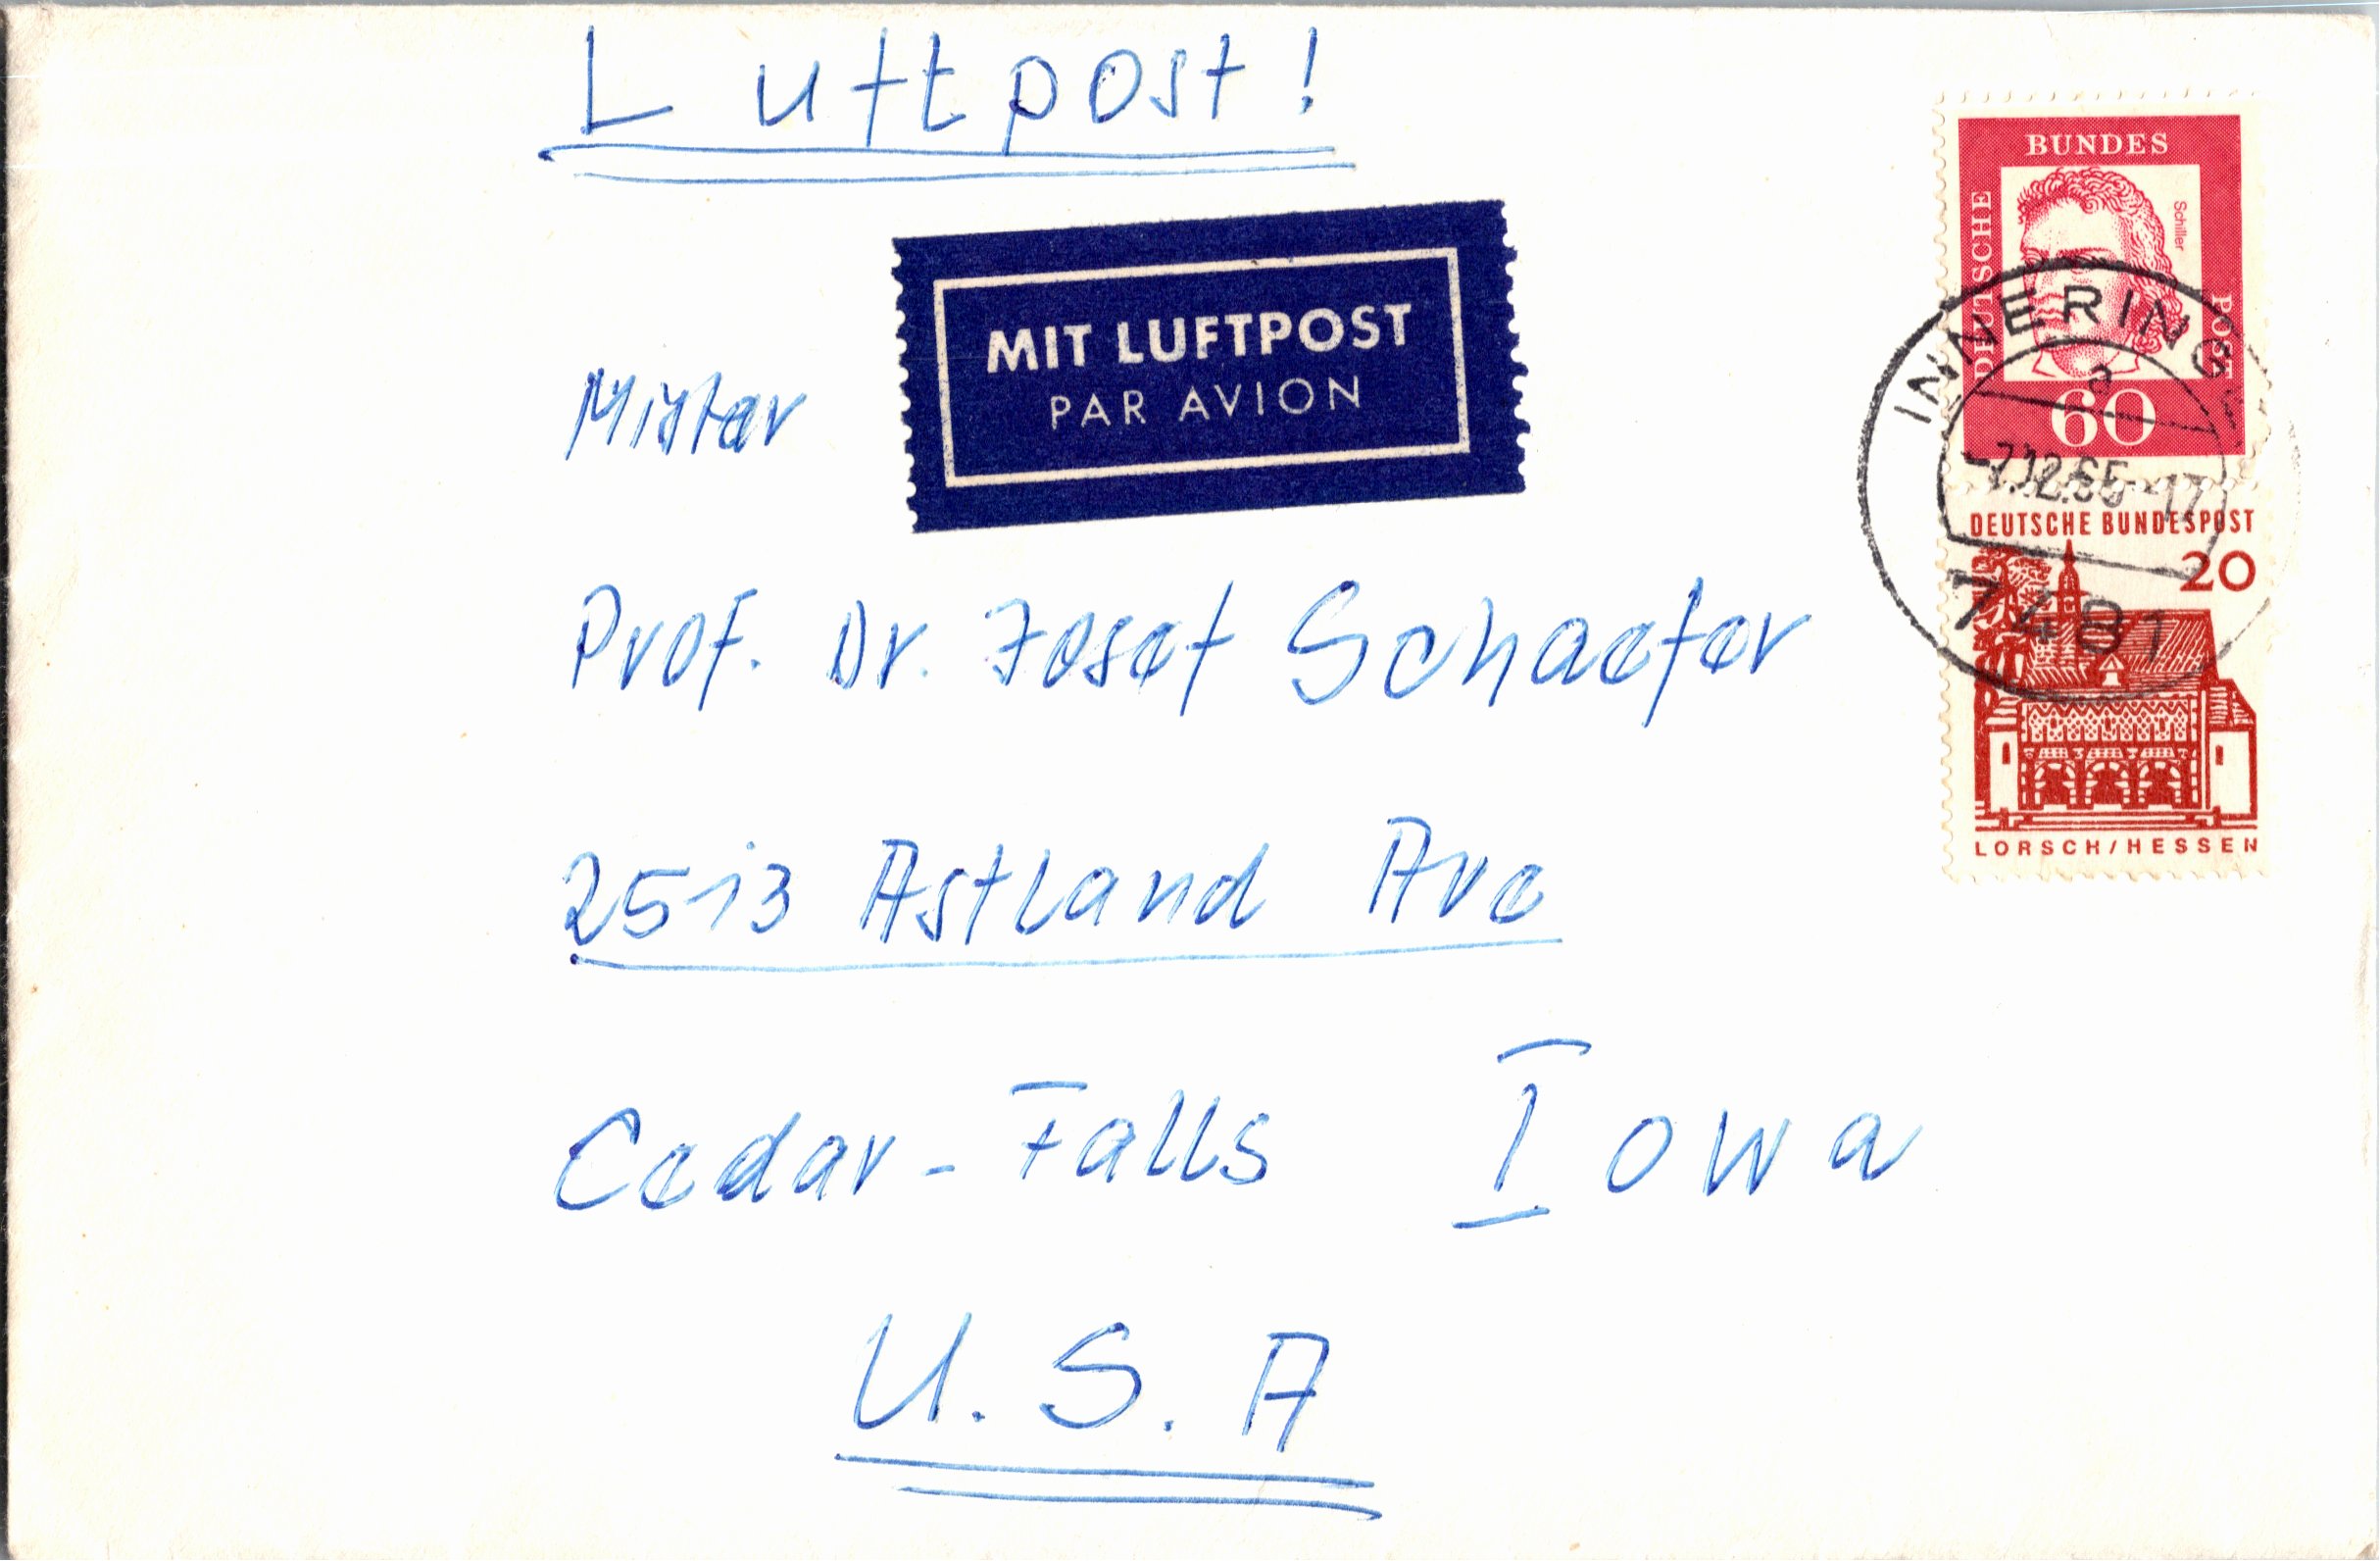 Luftpost!
MIT LUFTPOST
PAR AVION
Mister
Prof. Dr. Josef Schaefer
2513 Astland Ave
Cedar-Falls Iowa
U.S.A
BUNDES
DEUTSCHE
POST
Schiller
60
INNERING
a
-7.12.65-17
7481
DEUTSCHE BUNDESPOST
20
LORSCH/HESSEN